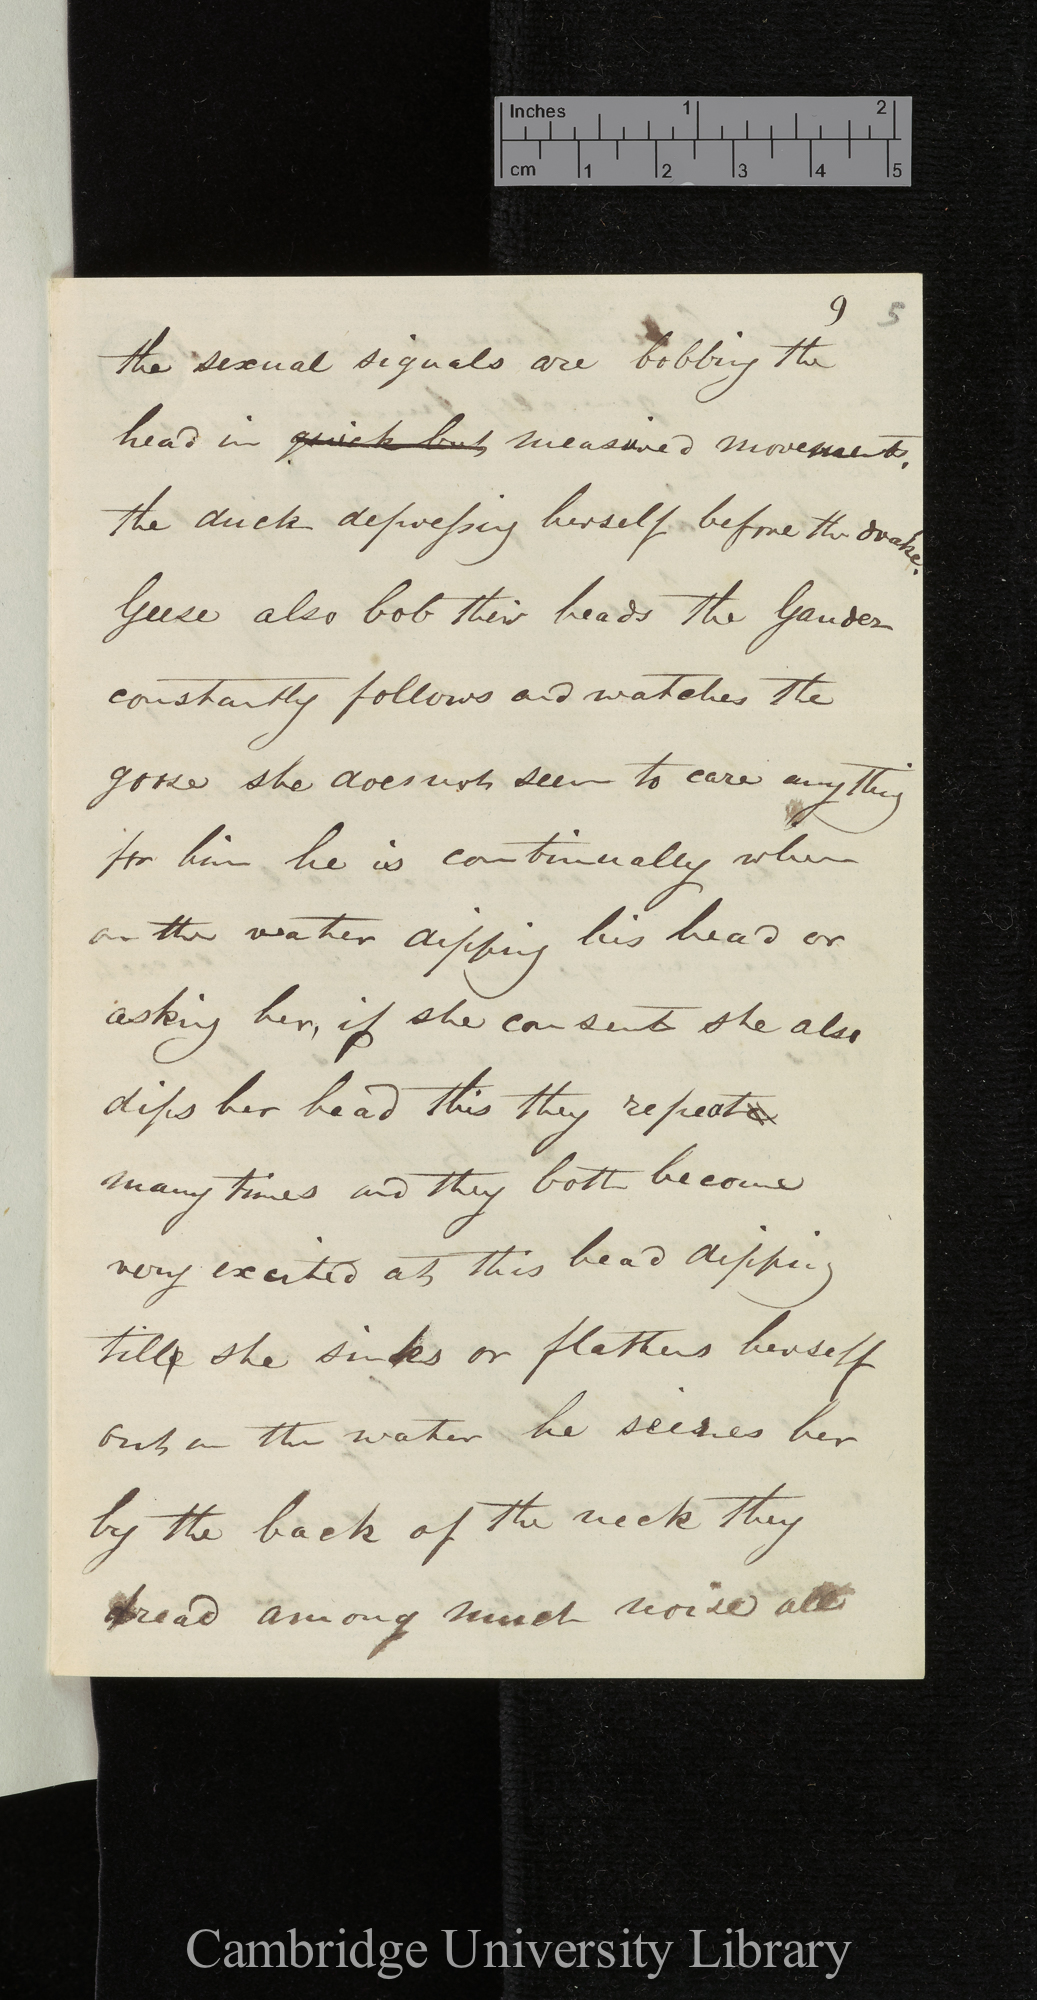 Inches 1 2
cm 1 2 3 4 5
9 5
the sexual signals are bobbing the
head in quick but measured movements.
the duck depressing herself before the drake.
Geese also bob their heads the Gander
constantly follows and watches the
goose she does not seem to care anything
for him he is continually when
on the water dipping his head or
asking her, if she consent she also
dips her head this they repeat
many times and they both become
very excited at this head dipping
till she sinks or flattens herself
out on the water he seizes her
by the back of the neck they
tread among much noise all
Cambridge University Library